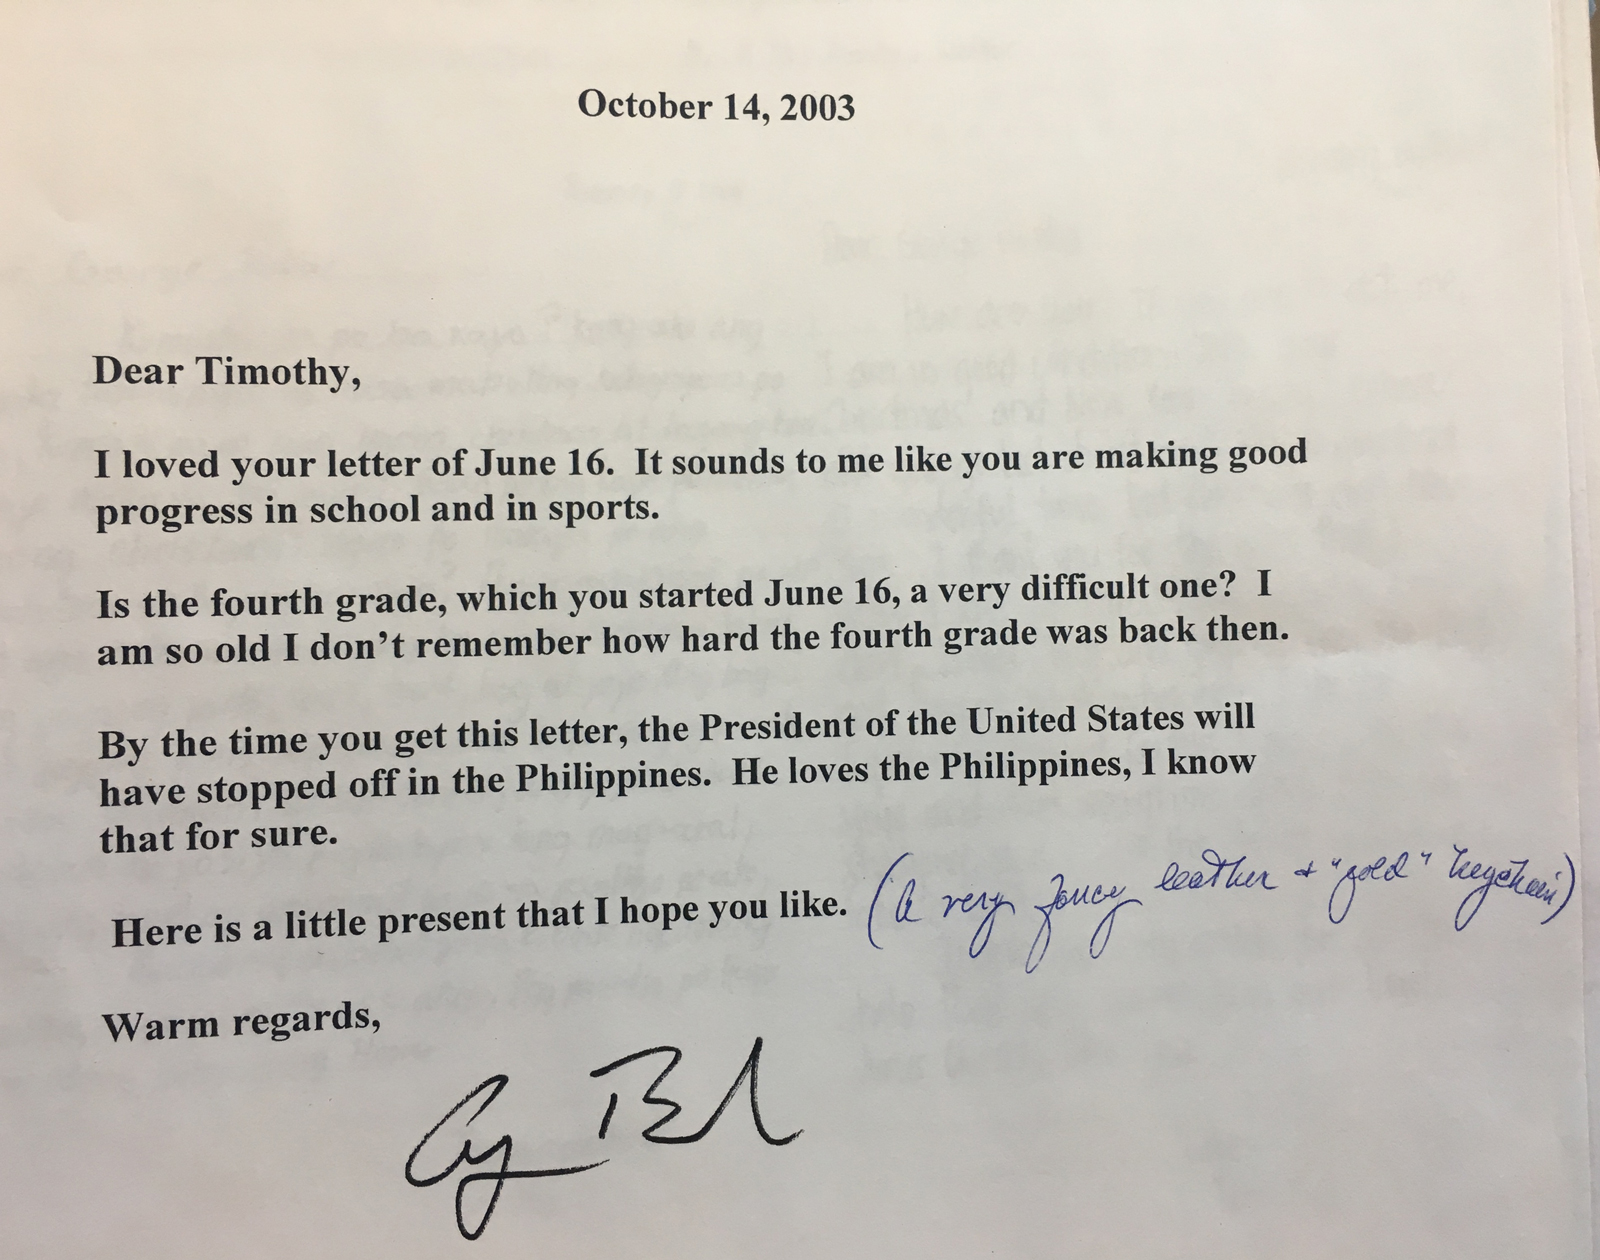 October 14, 2003
Dear Timothy,
I loved your letter of June 16.  It sounds to me like you are making good
progress in school and in sports.
Is the fourth grade, which you started June 16, a very difficult one?  I
am so old I don't remember how hard the fourth grade was back then.
By the time you get this letter, the President of the United States will
have stopped off in the Philippines.  He loves the Philippines, I know
that for sure.
Here is a little present that I hope you like. (A very fancy leather + "gold" keychain)
Warm regards,